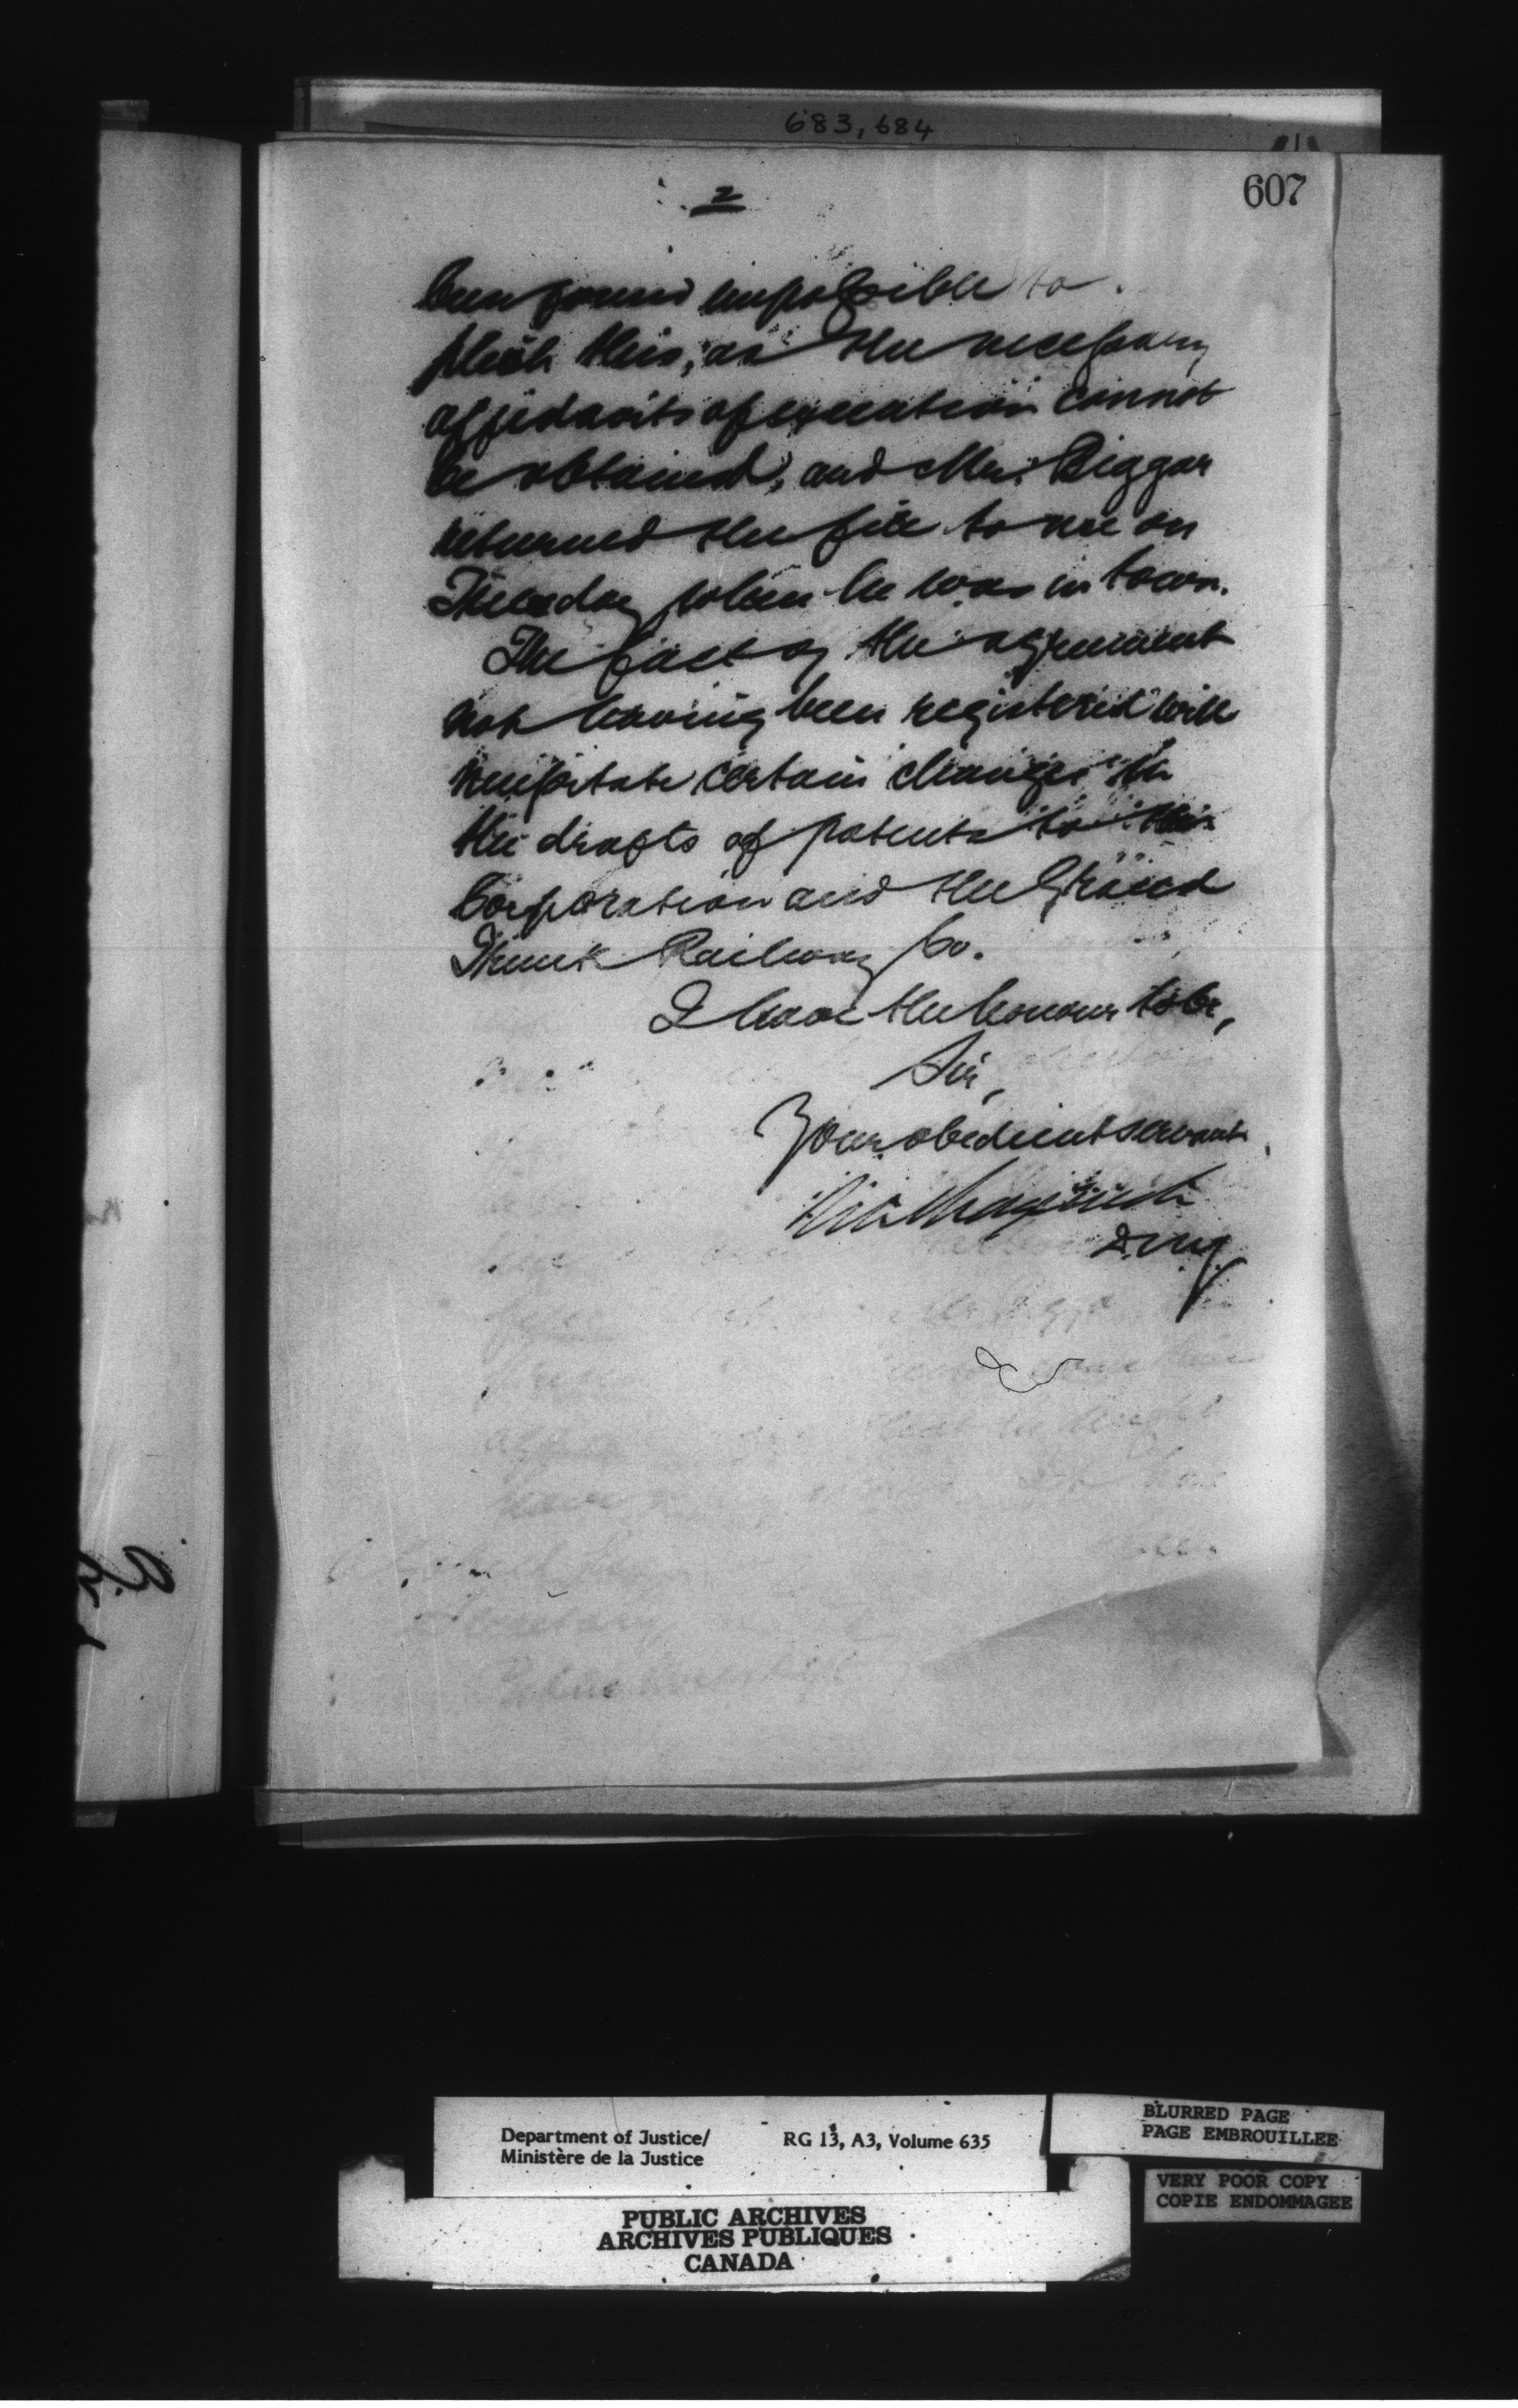 683, 684
607
2
been found impossible to
this, as the necessary
affidavits of execution cannot
be obtained, and Mr. Biggar
returned the file to me on
Tuesday when he was in town.
The fact of the agreement
not having been registered will
necessitate certain changes in
the drafts of patents to this
Corporation and the Grand
Trunk Railway Co.
I have the honour to be,
Sir,
Your obedient servant
Secretary
Department of Justice/
Ministère de la Justice
RG 13, A3, Volume 635
BLURRED PAGE
PAGE EMBROUILLEE
VERY POOR COPY
COPIE ENDOMMAGEE
PUBLIC ARCHIVES
ARCHIVES PUBLIQUES
CANADA